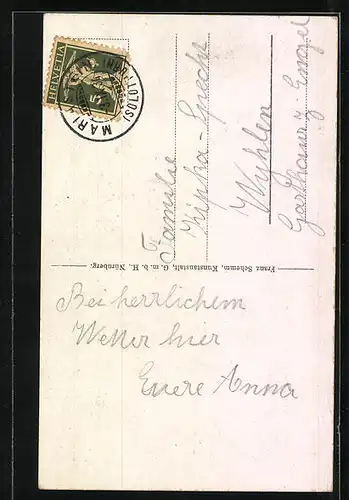 HELVETIA
5
MARI (SOLOTHURN)
Familie
Kipka-Specht
Wyhlen
Gasthaus z. Engel
Franz Schemm, Kunstanstalt, G. m. b. H. Nürnberg.
Bei herrlichem
Wetter hier
Euere Anna